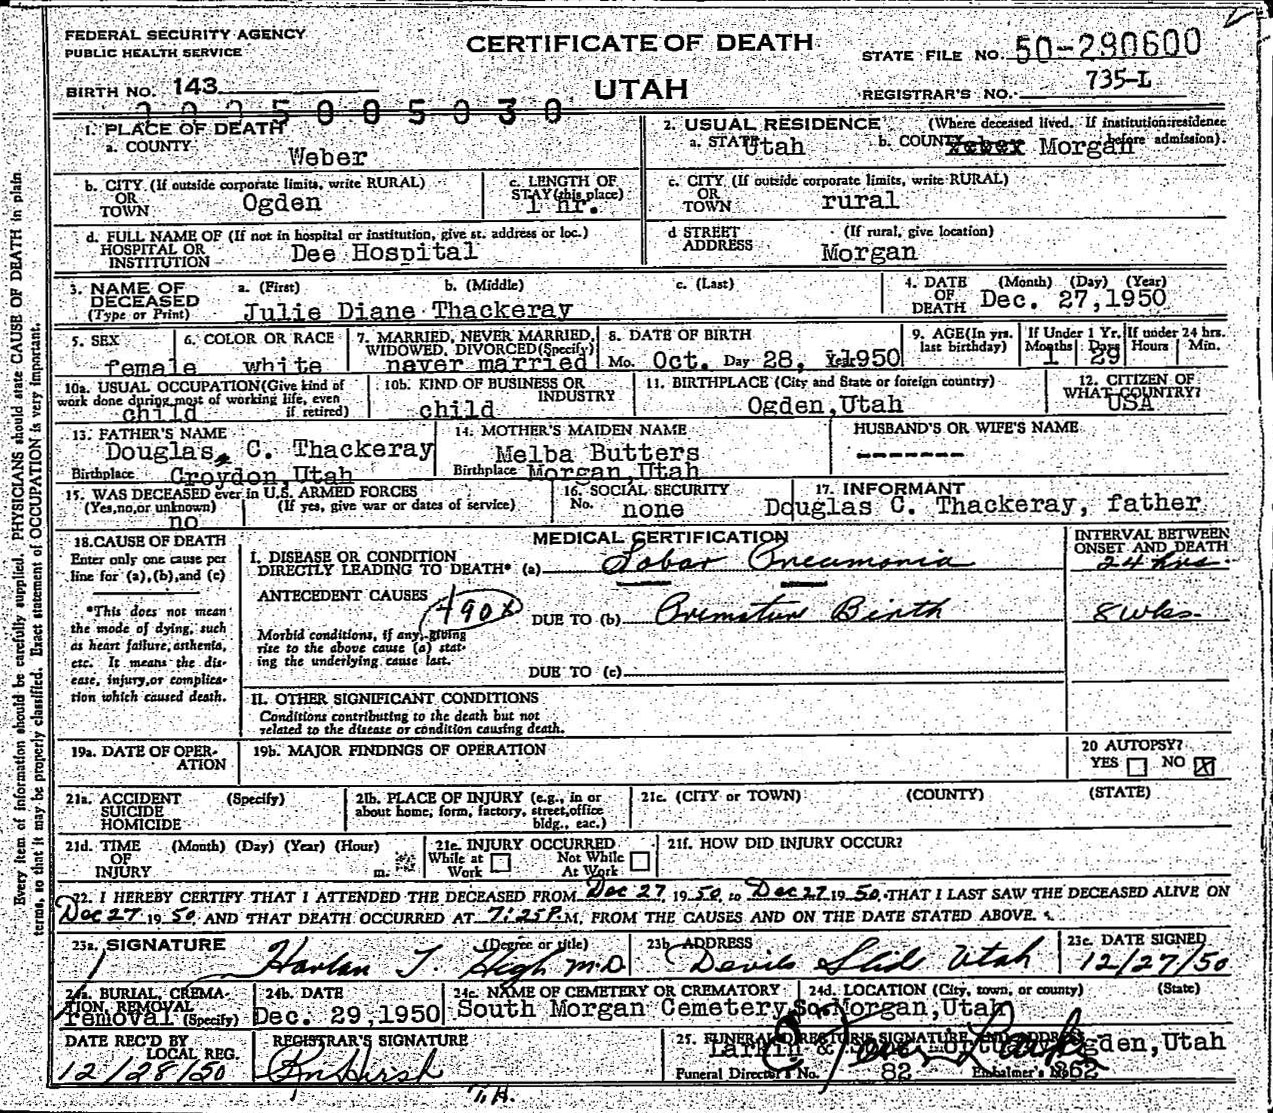 FEDERAL SECURITY AGENCY
PUBLIC HEALTH SERVICE
CERTIFICATE OF DEATH
STATE FILE NO. 50-290600
BIRTH NO. 143
UTAH
REGISTRAR'S NO. 735-L
5005030
1. PLACE OF DEATH
a. COUNTY
Weber
2. USUAL RESIDENCE (Where deceased lived. If institution: residence before admission).
a. STATE Utah b. COUNTY Weber Morgan
b. CITY (If outside corporate limits, write RURAL)
OR
TOWN Ogden
c. LENGTH OF
STAY (this place)
1 hr.
c. CITY (If outside corporate limits, write RURAL)
OR
TOWN rural
d. FULL NAME OF (If not in hospital or institution, give st. address or loc.)
HOSPITAL OR
INSTITUTION Dee Hospital
d STREET
ADDRESS (If rural, give location)
Morgan
3. NAME OF
DECEASED
(Type or Print)
a. (First) b. (Middle) c. (Last)
Julie Diane Thackeray
4. DATE
OF
DEATH
(Month) (Day) (Year)
Dec. 27,1950
5. SEX
female
6. COLOR OR RACE
white
7. MARRIED, NEVER MARRIED,
WIDOWED, DIVORCED (Specify)
never married
8. DATE OF BIRTH
Mo. Oct. Day 28, Yr. 1950
9. AGE (In yrs.
last birthday)
If Under 1 Yr.
Months Days
1 29
If under 24 hrs.
Hours Min.
10a. USUAL OCCUPATION (Give kind of
work done during most of working life, even
if retired)
child
10b. KIND OF BUSINESS OR
INDUSTRY
child
11. BIRTHPLACE (City and State or foreign country)
Ogden,Utah
12. CITIZEN OF
WHAT COUNTRY?
USA
13. FATHER'S NAME
Douglas C. Thackeray
Birthplace Croydon,Utah
14. MOTHER'S MAIDEN NAME
Melba Butters
Birthplace Morgan,Utah
HUSBAND'S OR WIFE'S NAME
-------
15. WAS DECEASED ever in U.S. ARMED FORCES
(Yes,no,or unknown) (If yes, give war or dates of service)
no
16. SOCIAL SECURITY
No. none
17. INFORMANT
Douglas C. Thackeray, father
18. CAUSE OF DEATH
Enter only one cause per
line for (a),(b),and (c)
*This does not mean
the mode of dying, such
as heart failure, asthenia,
etc. It means the dis-
ease, injury, or complica-
tion which caused death.
MEDICAL CERTIFICATION
I. DISEASE OR CONDITION
DIRECTLY LEADING TO DEATH* (a) Lobar Pneumonia
ANTECEDENT CAUSES 490X
DUE TO (b) Premature Birth
Morbid conditions, if any, giving
rise to the above cause (a) stat-
ing the underlying cause last.
DUE TO (c)
II. OTHER SIGNIFICANT CONDITIONS
Conditions contributing to the death but not
related to the disease or condition causing death.
INTERVAL BETWEEN
ONSET AND DEATH
24 hrs.
8 wks.
19a. DATE OF OPER-
ATION
19b. MAJOR FINDINGS OF OPERATION
20 AUTOPSY?
YES NO X
21a. ACCIDENT (Specify)
SUICIDE
HOMICIDE
21b. PLACE OF INJURY (e.g., in or
about home, form, factory, street, office
bldg., eac.)
21c. (CITY or TOWN) (COUNTY) (STATE)
21d. TIME (Month) (Day) (Year) (Hour)
OF
INJURY m.
21e. INJURY OCCURRED
While at Not While
Work At Work
21f. HOW DID INJURY OCCUR?
22. I HEREBY CERTIFY THAT I ATTENDED THE DECEASED FROM Dec 27, 1950, to Dec 27 1950, THAT I LAST SAW THE DECEASED ALIVE ON
Dec 27 1950, AND THAT DEATH OCCURRED AT 7:25P.M, FROM THE CAUSES AND ON THE DATE STATED ABOVE.
23a. SIGNATURE (Degree or title)
Harlan J. High M.D
23b ADDRESS
Devils Slide Utah
23c. DATE SIGNED
12/27/50
24a. BURIAL, CREMA-
TION, REMOVAL
removal (Specify)
24b. DATE
Dec. 29,1950
24c. NAME OF CEMETERY OR CREMATORY
South Morgan Cemetery,
24d. LOCATION (City, town, or county) (State)
So.Morgan,Utah
DATE REC'D BY
LOCAL REG.
12/28/50
REGISTRAR'S SIGNATURE
25. FUNERAL DIRECTOR'S SIGNATURE AND ADDRESS
Larkin & Sons Mortuary Ogden,Utah
Funeral Director's No. 82 Embalmer's No. 862
T.H.
Every item of information should be carefully supplied. PHYSICIANS should state CAUSE OF DEATH in plain
terms, so that it may be properly classified. Exact statement of OCCUPATION is very important.